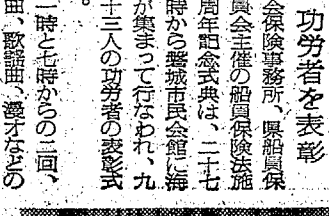 功労者を表彰
会保険事務所、県船員保
員会主催の船員保険法施
周年記念式典は、二十七
時から磐城市民会館に海
が集まって行なわれ、九
十三人の功労者の表彰式
一時と七時からの二回、
曲、歌謡曲、漫才などの